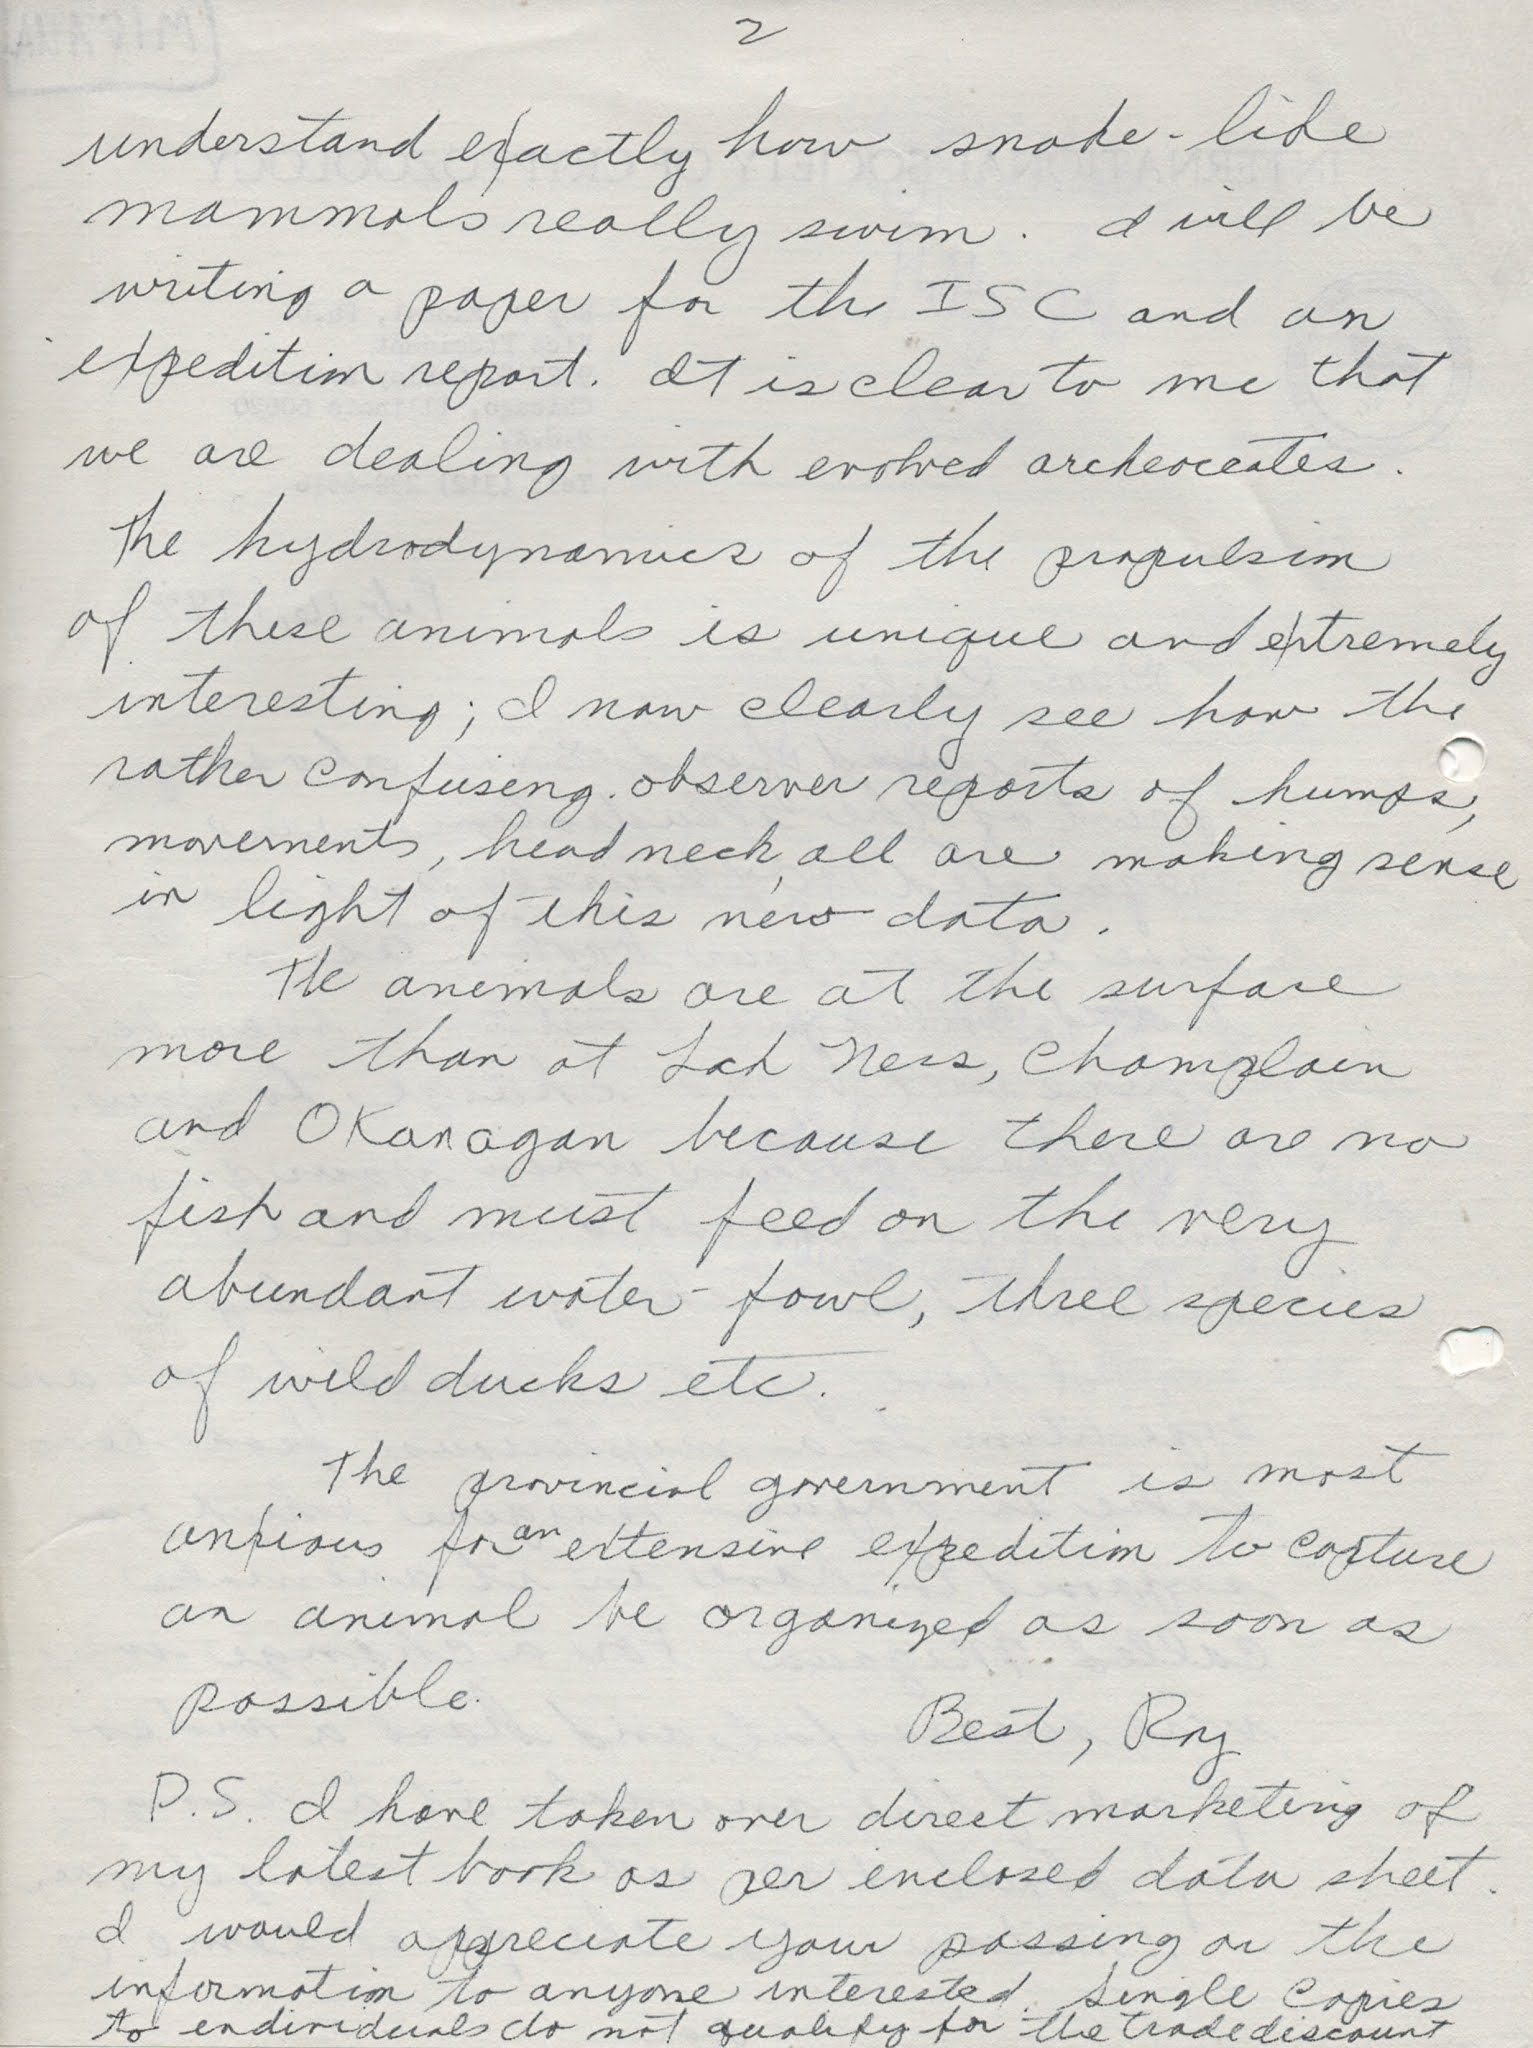 2
understand exactly how snake-like
mammals really swim. I will be
writing a paper for the ISC and an
expedition report. It is clear to me that
we are dealing with evolved archeoceates.
The hydrodynamics of the propulsion
of these animals is unique and extremely
interesting; I now clearly see how the
rather confuseng observer reports of humps,
movements, head neck, all are making sense
in light of this new data.
The animals are at the surface
more than at Loch Ness, Champlain
and OKanagan because there are no
fish and must feed on the very
abundant water-fowl, three species
of wild ducks etc.
The provincial government is most
anxious for an extensive expedition to capture
an animal be organized as soon as
possible.
Best, Roy
P.S. I have taken over direct marketing of
my latest book as per enclosed data sheet.
I would appreciate your passing on the
information to anyone interested. Single copies
to individuals do not qualify for the trade discount